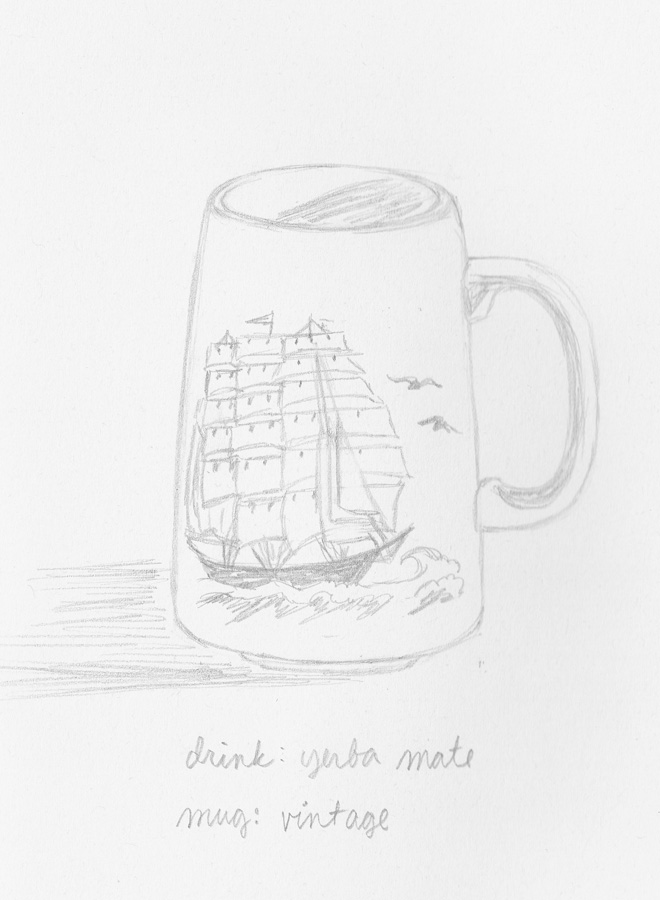 drink: yerba mate
mug: vintage